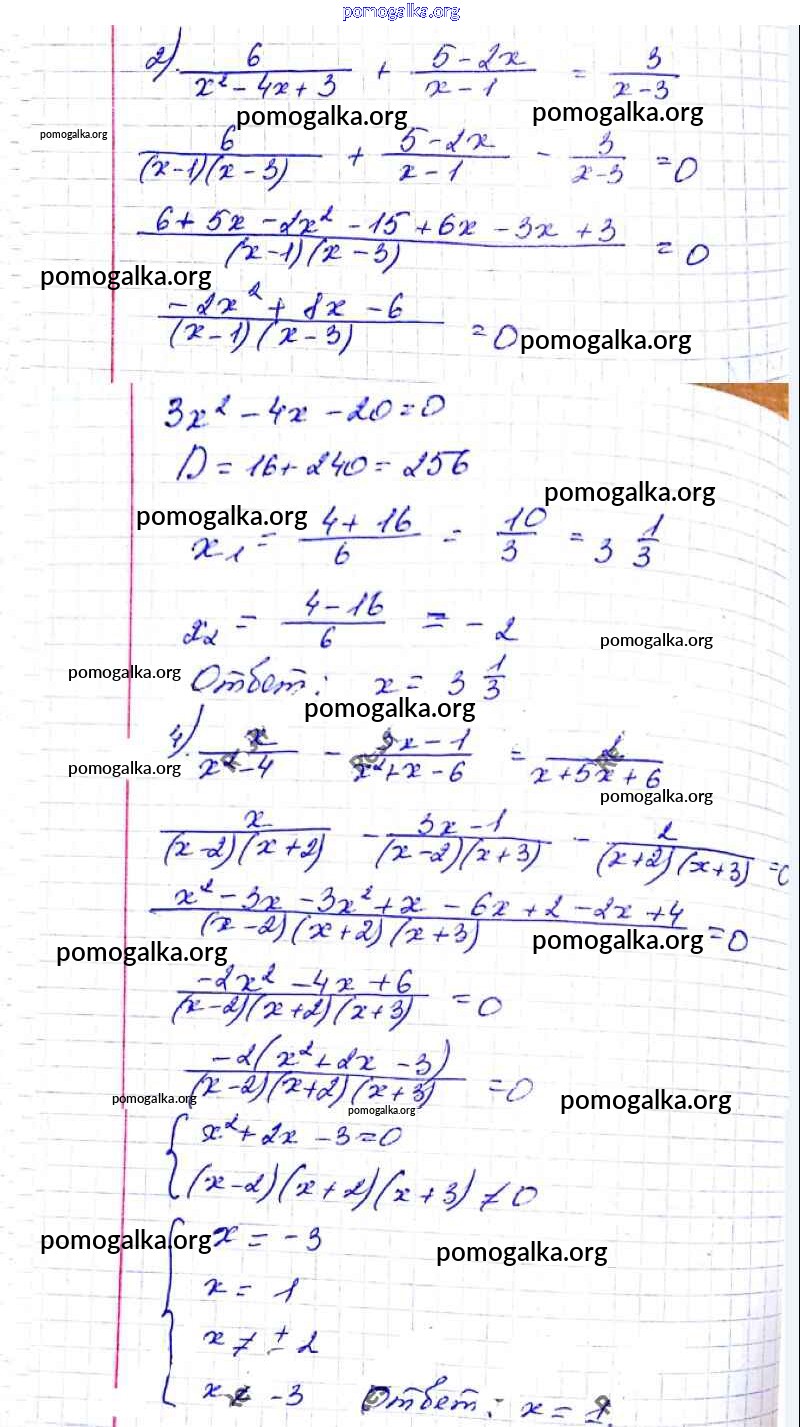 pomogalka.org
2). 6/(x² - 4x + 3) + (5 - 2x)/(x - 1) = 3/(x - 3)
pomogalka.org pomogalka.org
pomogalka.org
6/((x-1)(x-3)) + (5 - 2x)/(x - 1) - 3/(x-3) = 0
(6 + 5x - 2x² - 15 + 6x - 3x + 3)/((x-1)(x-3)) = 0
pomogalka.org
(-2x² + 8x - 6)/((x-1)(x-3)) = 0
pomogalka.org
3x² - 4x - 20 = 0
D = 16 + 240 = 256
pomogalka.org
pomogalka.org
x₁ = (4 + 16)/6 = 10/3 = 3 1/3
x₂ = (4 - 16)/6 = - 2
pomogalka.org
pomogalka.org
Ответ: x = 3 1/3
pomogalka.org
4). x/(x² - 4) - (3x - 1)/(x² + x - 6) = 2/(x + 5x + 6)
pomogalka.org
pomogalka.org
x/((x-2)(x+2)) - (3x - 1)/((x-2)(x+3)) - 2/((x+2)(x+3)) = 0
(x² - 3x - 3x² + x - 6x + 2 - 2x + 4)/((x-2)(x+2)(x+3)) = 0
pomogalka.org pomogalka.org
(-2x² - 4x + 6)/((x-2)(x+2)(x+3)) = 0
(-2(x² + 2x - 3))/((x-2)(x+2)(x+3)) = 0
pomogalka.org pomogalka.org
pomogalka.org
{ x² + 2x - 3 = 0
(x-2)(x+2)(x+3) ≠ 0
pomogalka.org
{ x = -3
pomogalka.org
x = 1
x ≠ ± 2
x ≠ -3 Ответ: x = 1.